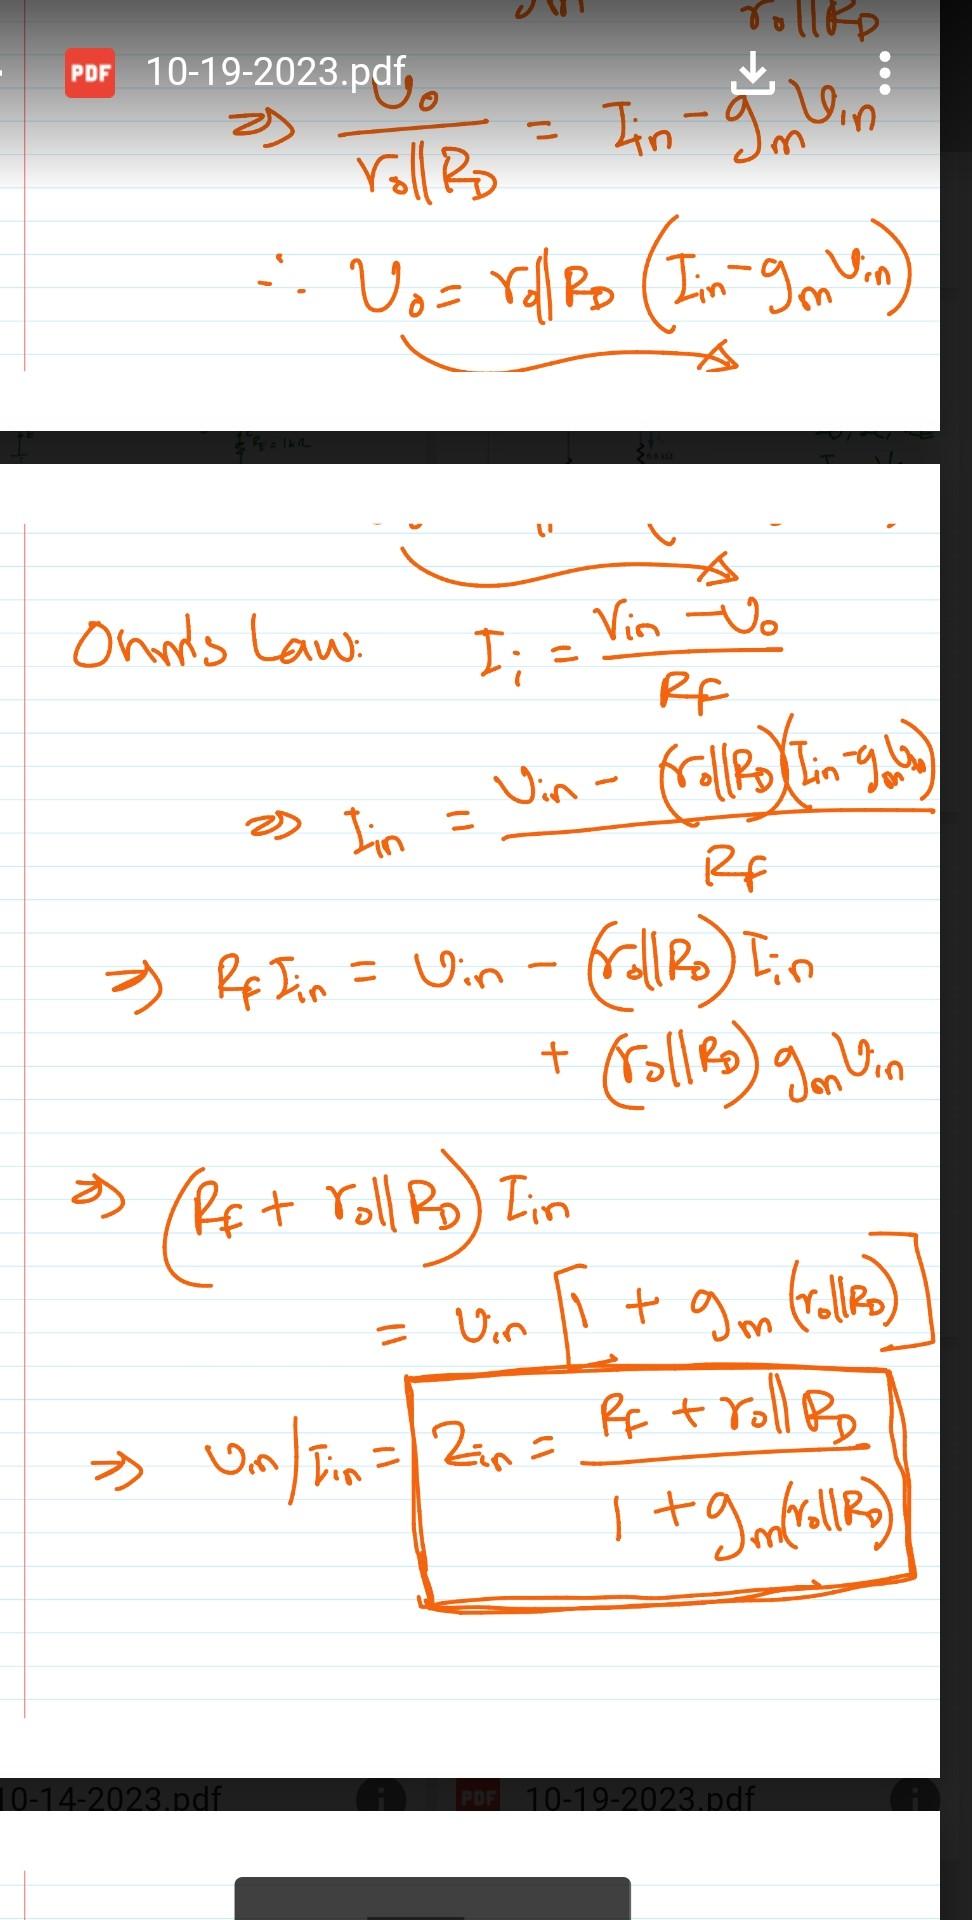 r₀||R_D
PDF 10-19-2023.pdf
⇒ v₀ / (r₀||R_D) = I_in - g_m v_in
∴ v₀ = r₀||R_D (I_in - g_m v_in)
Ohm's Law: I_i = (V_in - v₀) / R_F
⇒ I_in = (v_in - (r₀||R_D)(I_in - g_m v_in)) / R_F
⇒ R_F I_in = v_in - (r₀||R_D) I_in
+ (r₀||R_D) g_m v_in
⇒ (R_F + r₀||R_D) I_in
= v_in [1 + g_m (r₀||R_D)]
⇒ v_in / I_in = Z_in = (R_F + r₀||R_D) / (1 + g_m (r₀||R_D))
10-14-2023.pdf PDF 10-19-2023.pdf